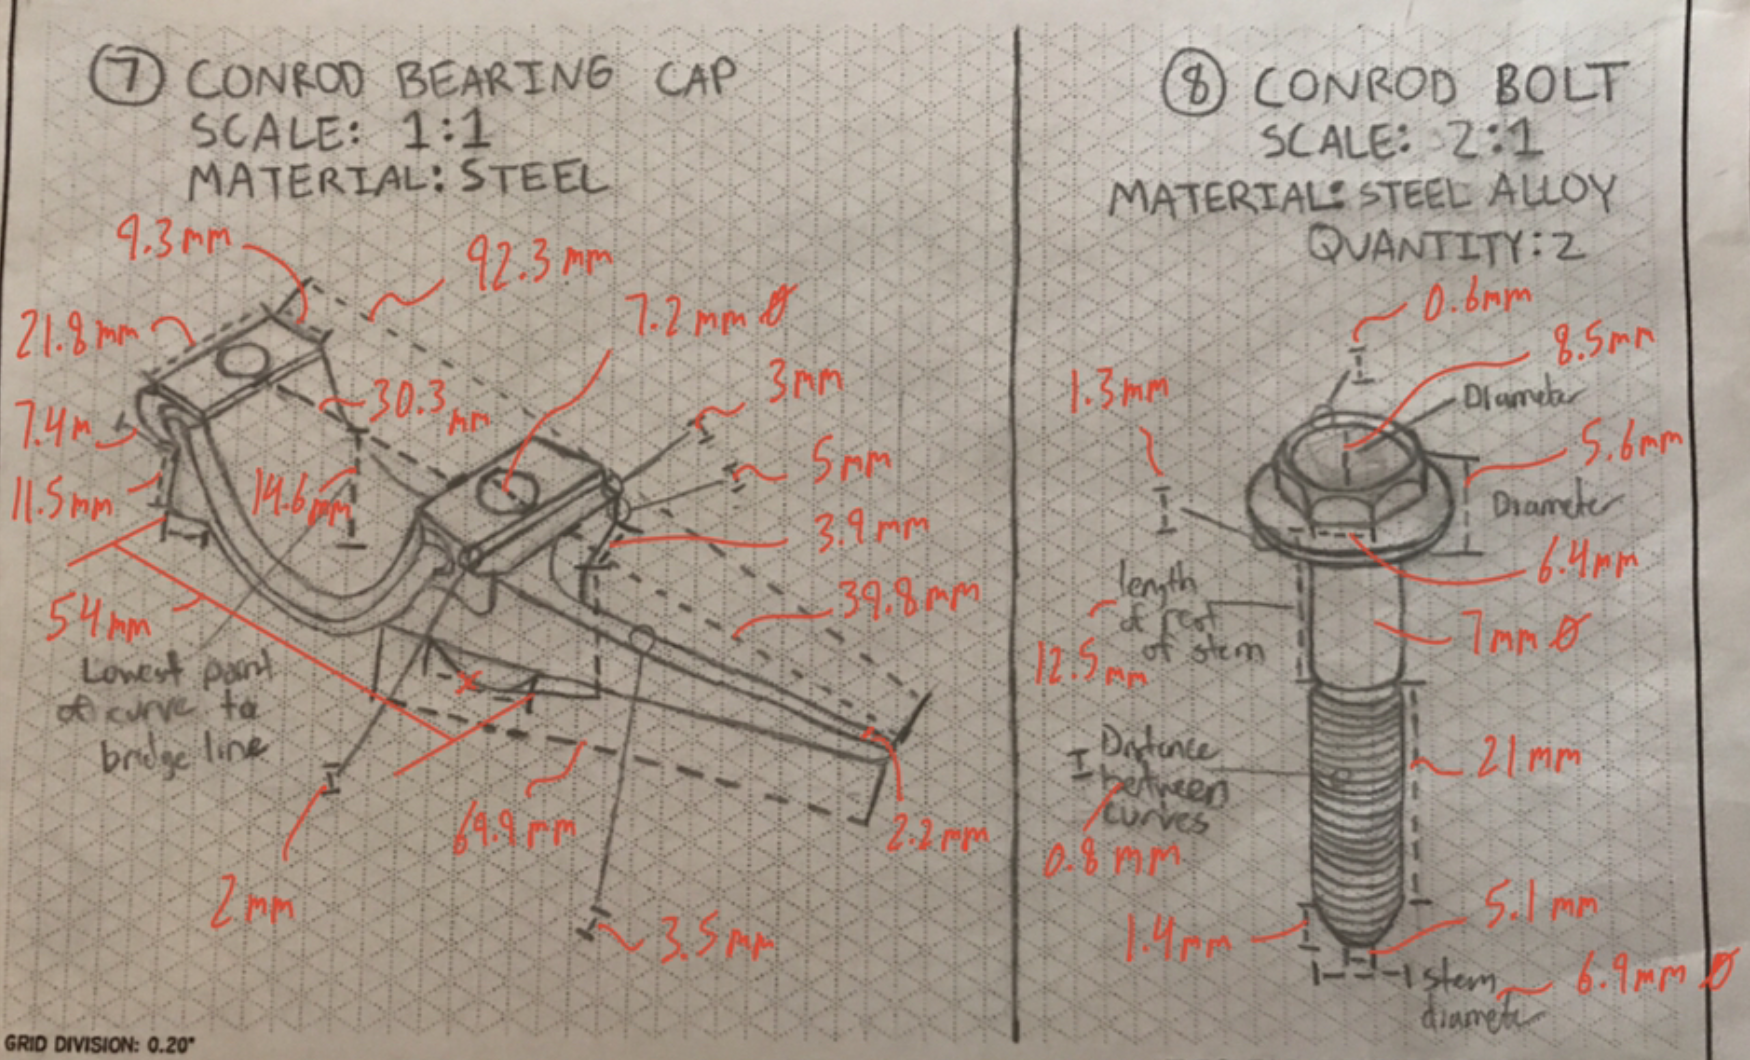 7 CONROD BEARING CAP
SCALE: 1:1
MATERIAL: STEEL
9.3mm
92.3mm
21.8mm
7.2mm Ø
30.3 mm
3mm
7.4m
5mm
11.5mm
14.6mm
3.9mm
39.8mm
54mm
Lowest point
of curve to
bridge line
69.9mm
2.2mm
2mm
3.5mm
x
GRID DIVISION: 0.20"
8 CONROD BOLT
SCALE: 2:1
MATERIAL: STEEL ALLOY
QUANTITY: 2
0.6mm
8.5mm
Diameter
1.3mm
5.6mm
Diameter
6.4mm
length
of rest
of stem
12.5mm
7mm Ø
Distance
between
curves
0.8mm
21mm
5.1mm
1.4mm
stem
diameter
6.9mm Ø